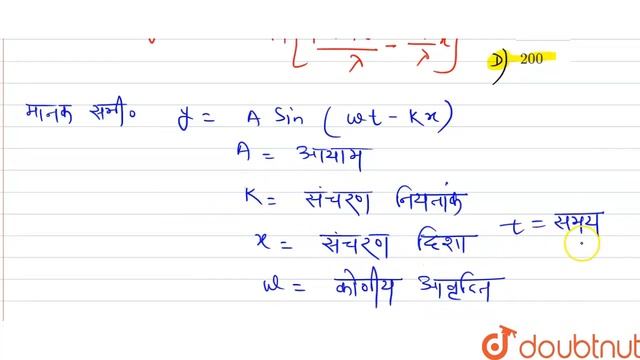 λ - λ x]
D) 200
मानक समी० y = A Sin (ωt - Kx)
A = आयाम
K = संचरण नियतांक
x = संचरण दिशा t = समय
ω = कोणीय आवृत्ति
doubtnut